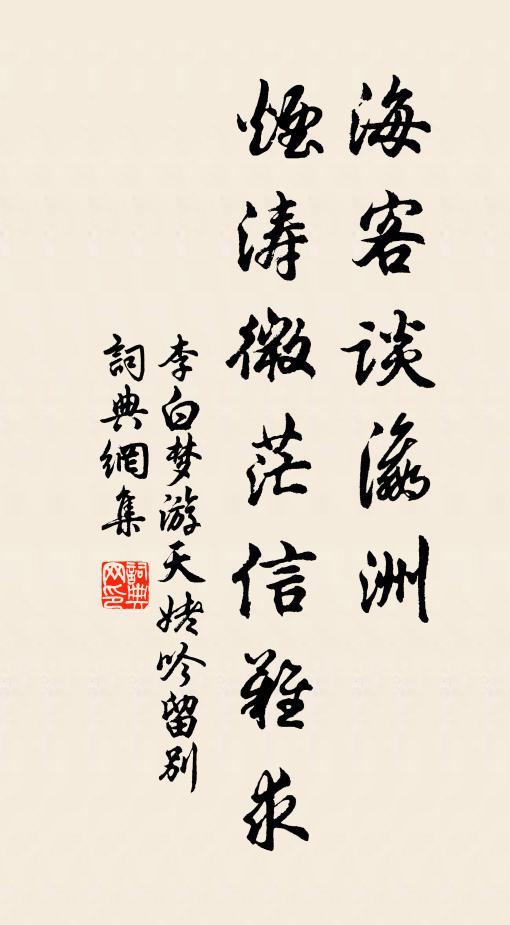 海客談瀛洲
煙濤微茫信難求
李白梦游天姥吟留别
詞典網集
詞典网印